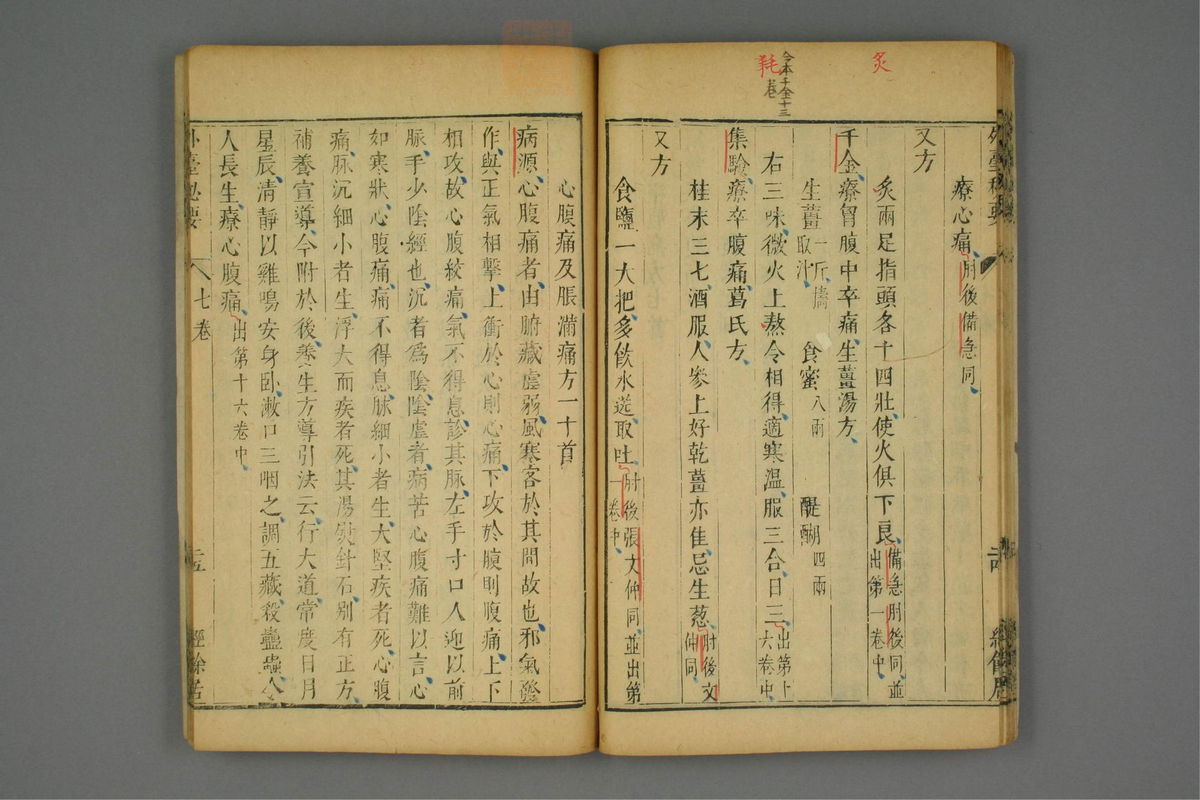 炙
今本千金十三
卷
耗
療心痛肘後備急同
又方
炙兩足指頭各十四壯使火俱下良備急肘後同並出第一卷中
千金療胷腹中卒痛生薑湯方
生薑一斤擣取汁 食蜜八兩 醍醐四兩
右三味微火上熬令相得適寒溫服三合日三出第十六卷中
集驗療卒腹痛葛氏方
桂末三七酒服人參上好乾薑亦佳忌生葱肘後文仲同
又方
食鹽一大把多飲水送取吐肘後張文仲同並出第一卷中
心腹痛及脹滿痛方一十首
病源心腹痛者由腑藏虛弱風寒客於其間故也邪氣發
作與正氣相擊上衝於心則心痛下攻於腹則腹痛上下
相攻故心腹絞痛氣不得息診其脉左手寸口人迎以前
脉手少陰經也沉者為陰陰虛者病苦心腹痛難以言心
如寒狀心腹痛痛不得息脉細小者生大堅疾者死心腹
痛脉沉細小者生浮大而疾者死其湯熨針石別有正方
補養宣導今附於後養生方導引法云行大道常度日月
星辰清靜以雞鳴安身卧漱口三咽之調五藏殺蠱蟲令
人長生療心腹痛出第十六卷中
外臺秘要
七卷
二五
經餘居